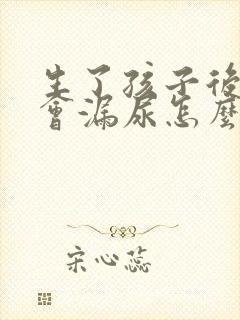 生了孩子後
會漏尿怎麼
宋心蕊